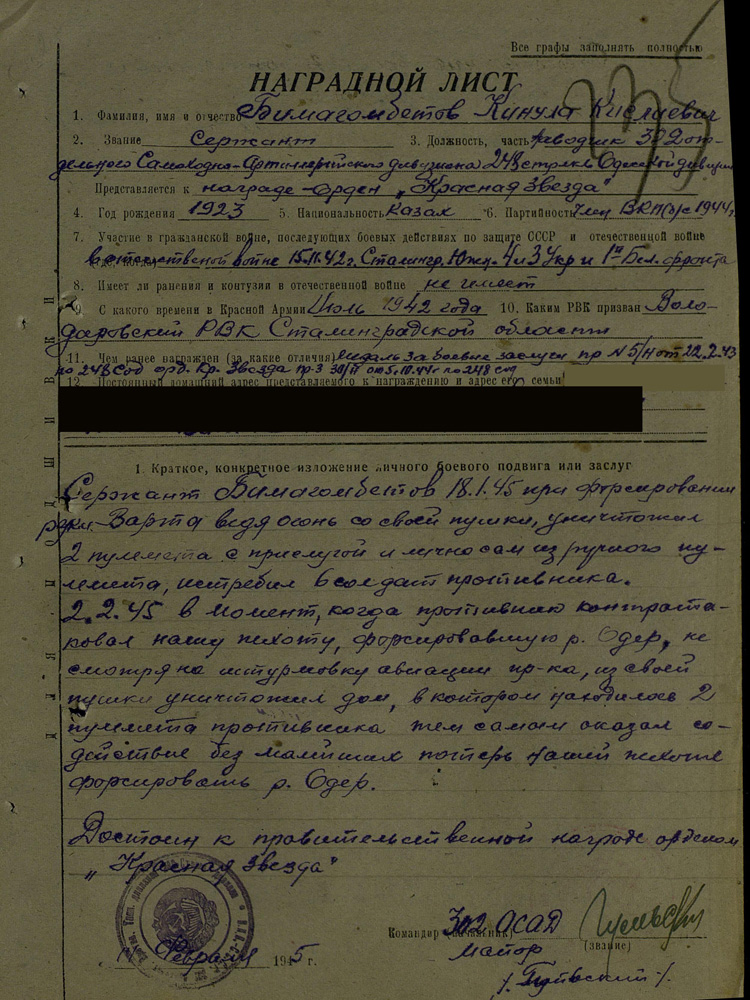 Все графы заполнять полностью
НАГРАДНОЙ ЛИСТ
1. Фамилия, имя и отчество Бимагомбетов Кинула Кислаевич
2. Звание Сержант 3. Должность, часть наводчик 302 от-
дельного Самоходно-Артиллерийского дивизиона 248 стрелк. Одесской дивизии
Представляется к награде - орден „Красная Звезда"
4. Год рождения 1923 5. Национальность казах 6. Партийность Член ВКП(б) с 1944 г.
7. Участие в гражданской войне, последующих боевых действиях по защите СССР и отечественной войне
в отечественой войне 15.11.42 г. Сталингр. Южн. 4 и 3 Укр и 1й Бел. фронта
8. Имеет ли ранения и контузии в отечественной войне не имеет
9. С какого времени в Красной Армии Июль 1942 года 10. Каким РВК призван Воло-
даровский РВК Сталинградской области
11. Чем ранее награжден (за какие отличия) медаль За боевые заслуги пр N 5/н от 22.2.43
по 248 сд орд. Кр. Звезда пр-з от 5.10.44 г по 248 сд
12. Постоянный домашний адрес представляемого к награждению и адрес его семьи
1. Краткое, конкретное изложение личного боевого подвига или заслуг
Сержант Бимагомбетов 18.1.45 при форсировании
реки Варта ведя огонь со своей пушки, уничтожил
2 пулемета с прислугой и лично сам из ручного пу-
лемета, истребил 6 солдат противника.
2.2.45 в момент, когда противник контрата-
ковал нашу пехоту, форсировавшую р. Одер, не
смотря на штурмовку авиации пр-ка, из своей
пушки уничтожил дом, в котором находилось 2
пулемета противника тем самым оказал со-
действие без малейших потерь нашей пехоте
форсировать р. Одер.
Достоин к правительственной награде орденом
„Красная Звезда"
Командир (начальник) 302 ОСАД
(звание)
Майор
Февраля 1945 г.
/. Гулевский /.